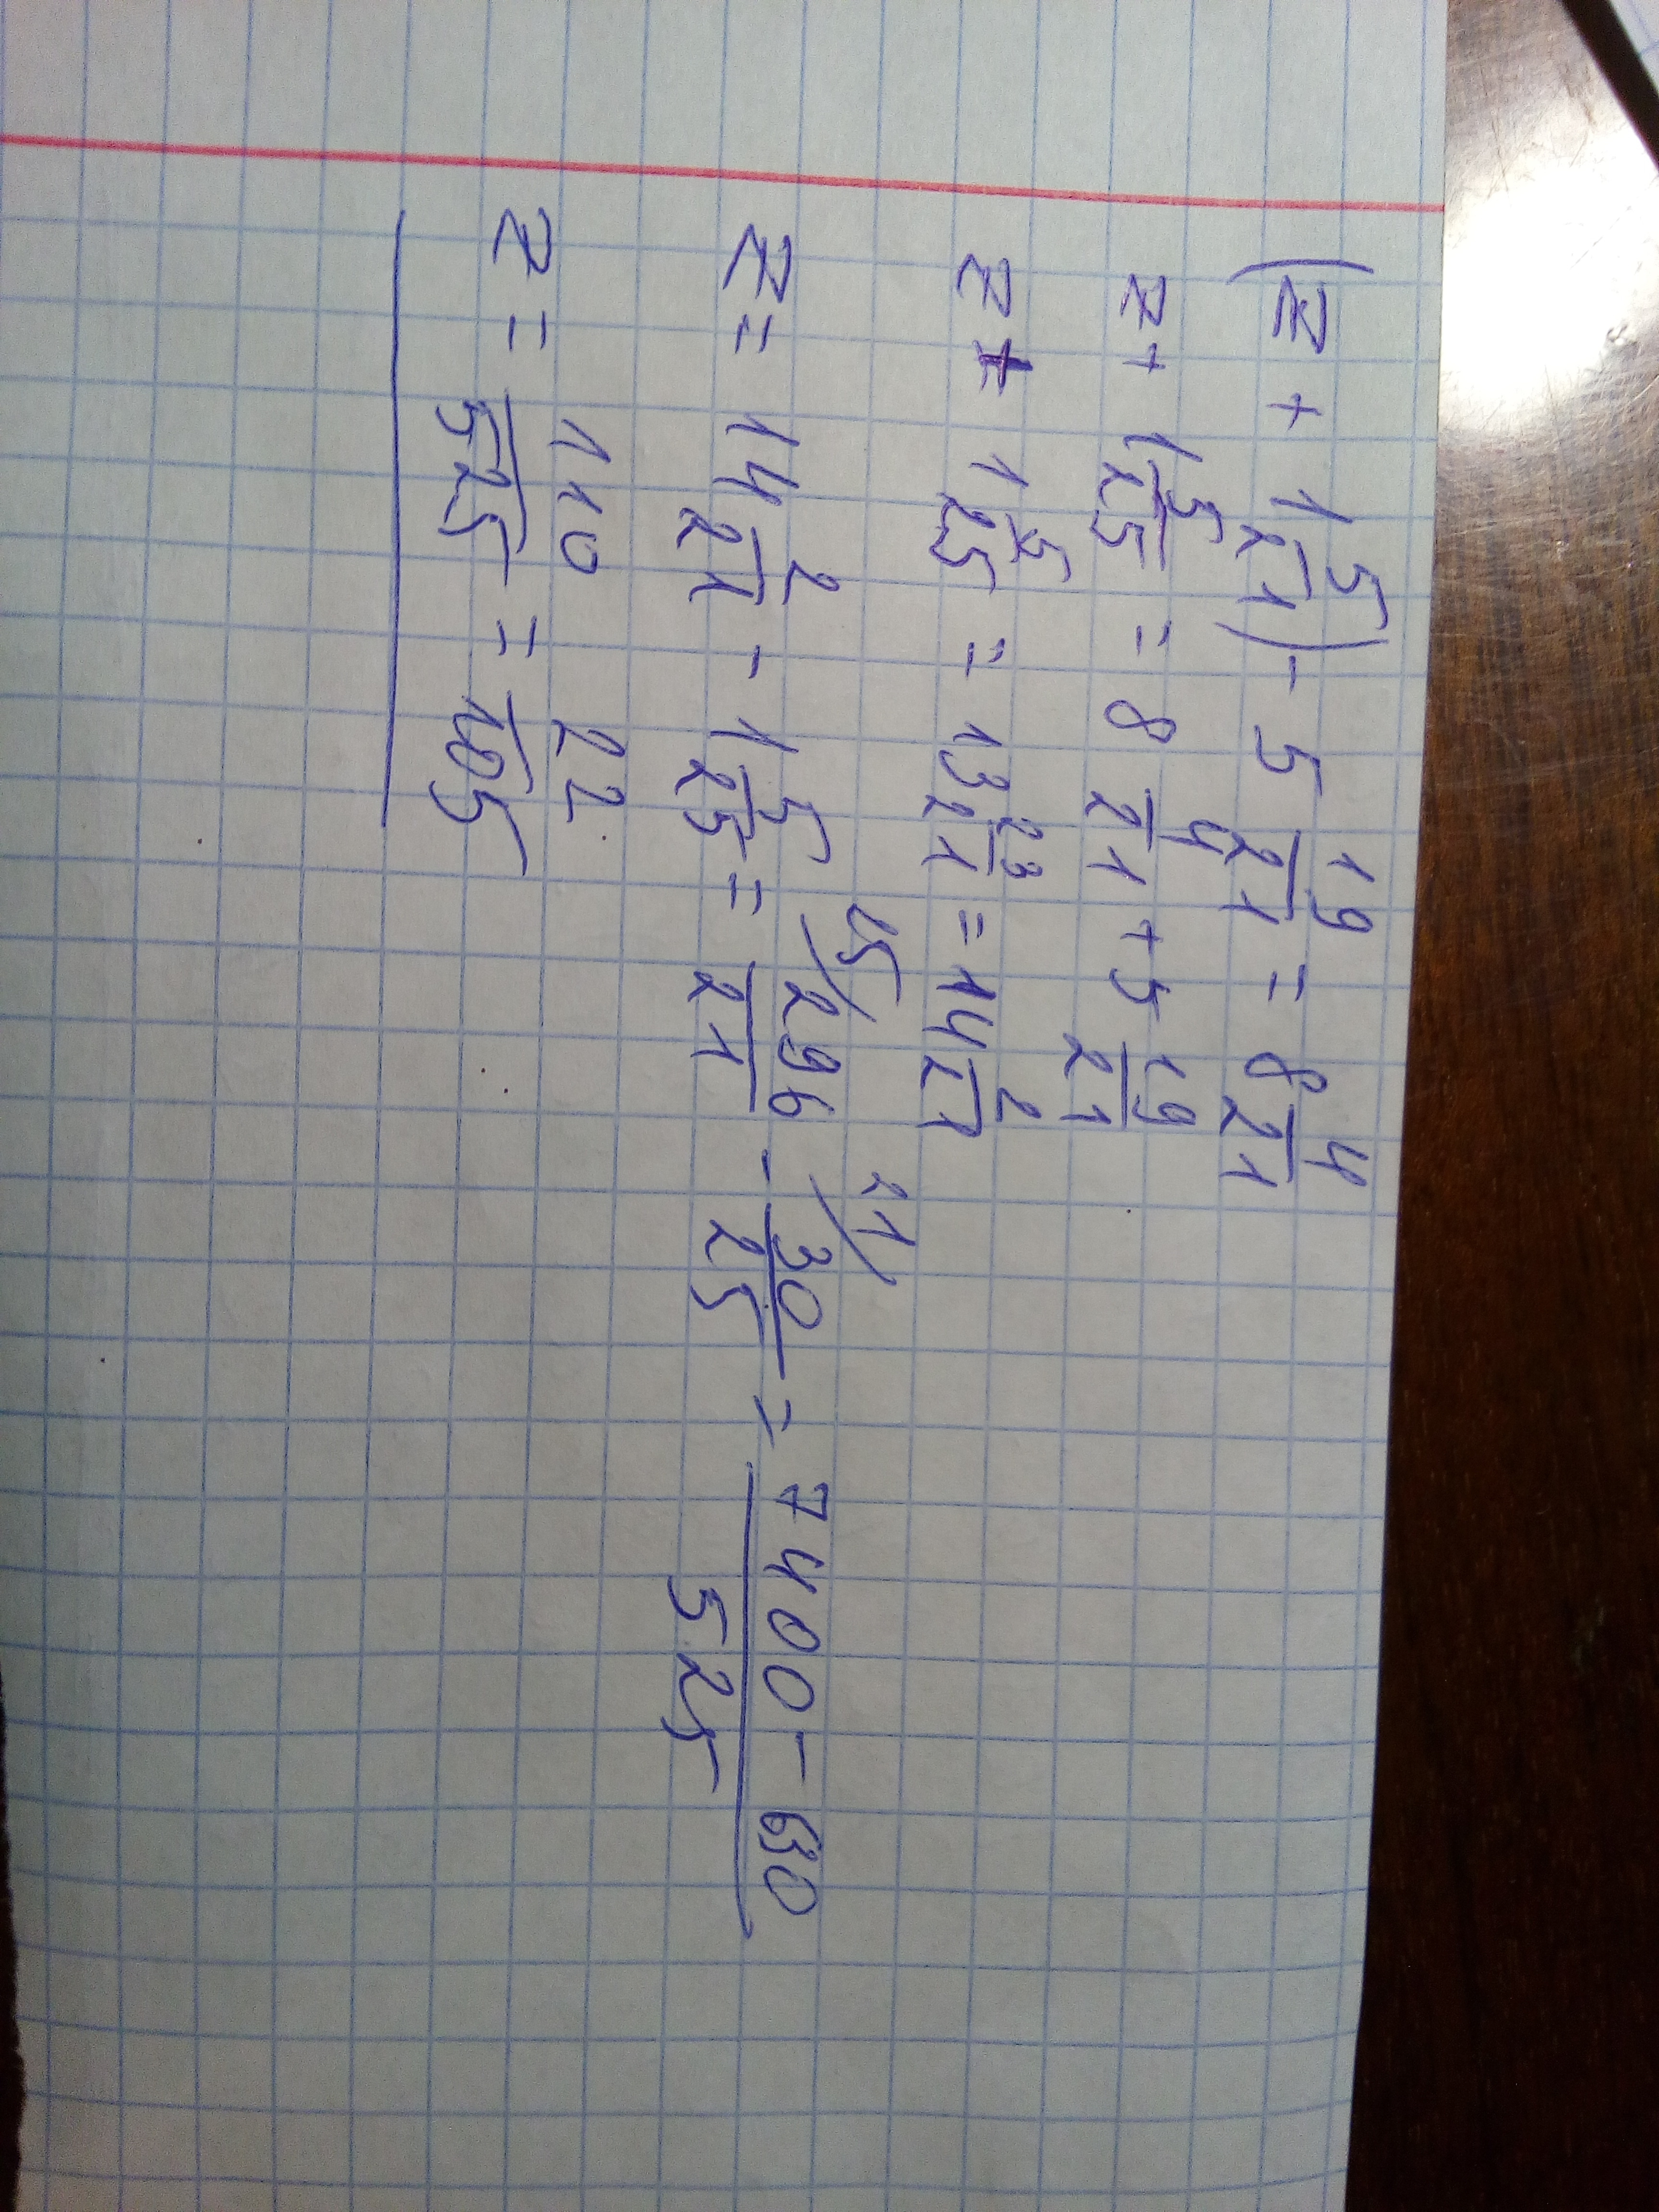 (z + 1 5/21) - 5 19/21 = 8 4/21
z + 1 5/25 = 8 4/21 + 5 19/21
z + 1 5/25 = 13 23/21 = 14 2/21
z = 14 2/21 - 1 5/25 = 25/ 296/21 - 21/ 30/25 = 7400-630/525
z = 110/525 = 22/105